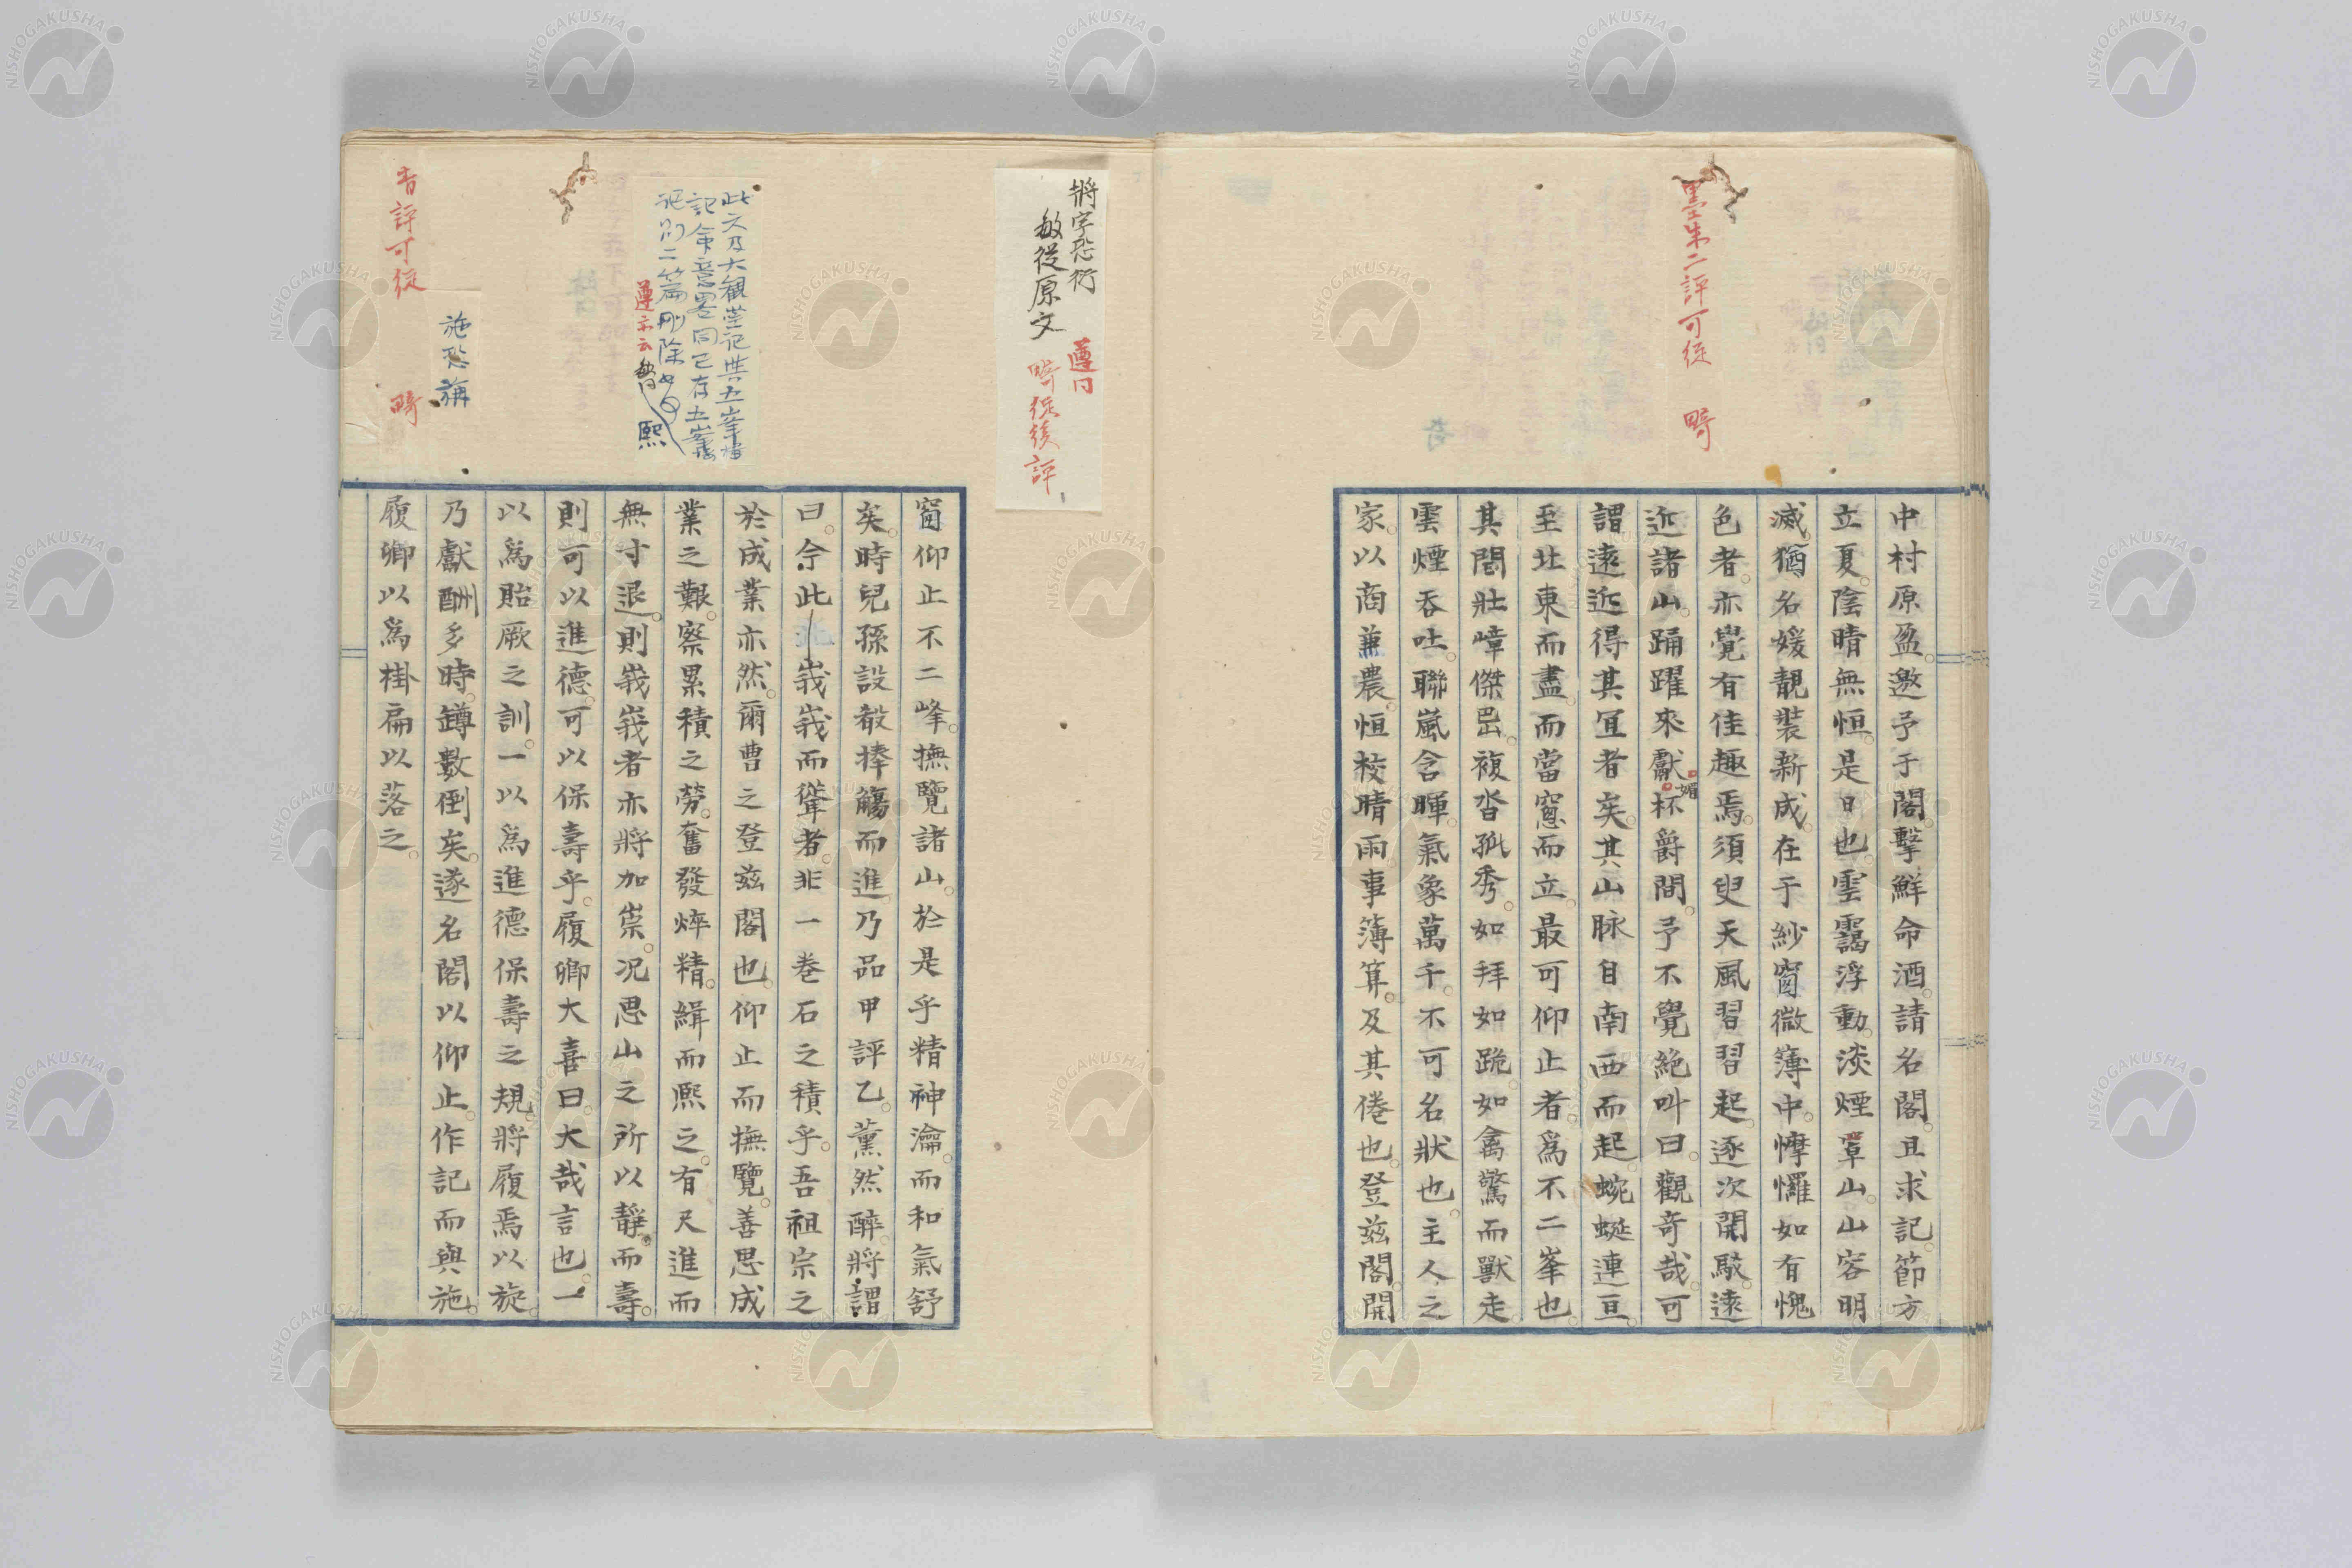 墨朱二評可從 畸
中村原盈邀予于閣擊鮮命酒請名閣且求記節方
立夏陰晴無恒是日也雲靄浮動淡煙罩山山容明
滅猶名媛靚裝新成在于紗窗微簿中㡧㦬如有愧
色者亦覺有佳趣焉須臾天風習習起逐次開駁遠
近諸山踊躍來獻杯爵間予不覺絶叫曰觀奇哉可
媚
謂遠近得其宜者矣其山脉自南西而起蜿蜒連亘
至北東而盡而當窻而立最可仰止者爲不二峯也
其閎壯嶂傑嵒複沓孤秀如拜如跪如禽驚而獸走
雲煙吞吐聯嵐含暉氣象萬千不可名狀也主人之
家以商兼農恒校晴雨事簿筭及其倦也登茲閣開
將字恐衍
敏從原文
遵同
畸從後評
窗仰止不二峰撫覽諸山於是乎精神瀹而和氣舒
矣時兒孫設殽捧觴而進乃品甲評乙薰然醉將謂
曰今此峩峩而聳者非一巻石之積乎吾祖宗之
於成業亦然爾曹之登茲閣也仰止而撫覽善思成
業之艱察累積之勞奮發焠精緝而熙之有尺進而
無寸退則峩峩者亦將加崇况思山之所以靜而壽
則可以進德可以保壽乎履卿大喜曰大哉言也一
以爲貽厥之訓一以爲進德保壽之規將履焉以旋
乃獻酬多時罇數倒矣遂名閣以仰止作記而與施
履卿以爲掛扁以落之
此文及大觀堂記共五峯樓
記命意畧同已存五峯樓
記則二篇刪除 熙
遵亦云
敏同
施恐旃
青評可從 畸